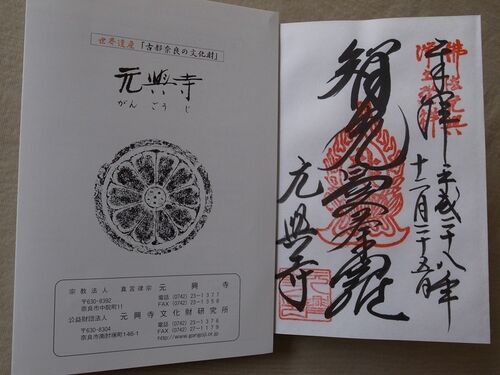 世界遺産「古都奈良の文化財」
元興寺
がんごうじ
宗教法人 真言律宗 元興寺
〒630-8392 電話 (0742) 23-1377
奈良市中院町11 FAX (0742) 23-1358
公益財団法人 元興寺文化財研究所
〒630-8304 電話 (0742) 23-1376
奈良市南肘塚町146-1 FAX (0742) 27-1179
http://www.gangoji.or.jp
奉拝 平成二十八年
十二月二十五日
智光曼荼羅
元興寺